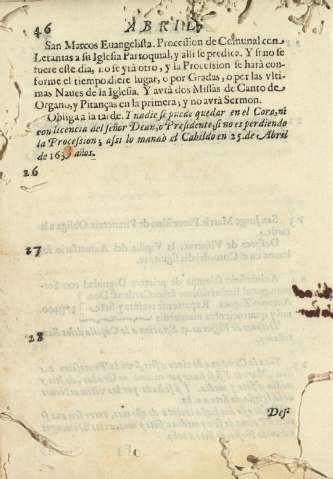 46
ABRIL
San Marcos Euangelista. Procession de Comunal con
Letanias a su Iglesia Parroquial, y alli se predica. Y si no se
fuere este dia, no se yrà otro, y la Procession se harà con-
forme el tiempo diere lugar, o por Gradas, o por las vlti-
mas Naues de la Iglesia. Y avrà dos Missas de Canto de
Organo, y Pitanças en la primera, y no avrà Sermon.
Obliga a la tarde. Y nadie se puede quedar en el Coro, ni
con licencia del señor Dean, o Presidente, si no es perdiendo
la Procession; assi lo mandò el Cabildo en 25. de Abril
de 163 años.
26
27
28
Des-